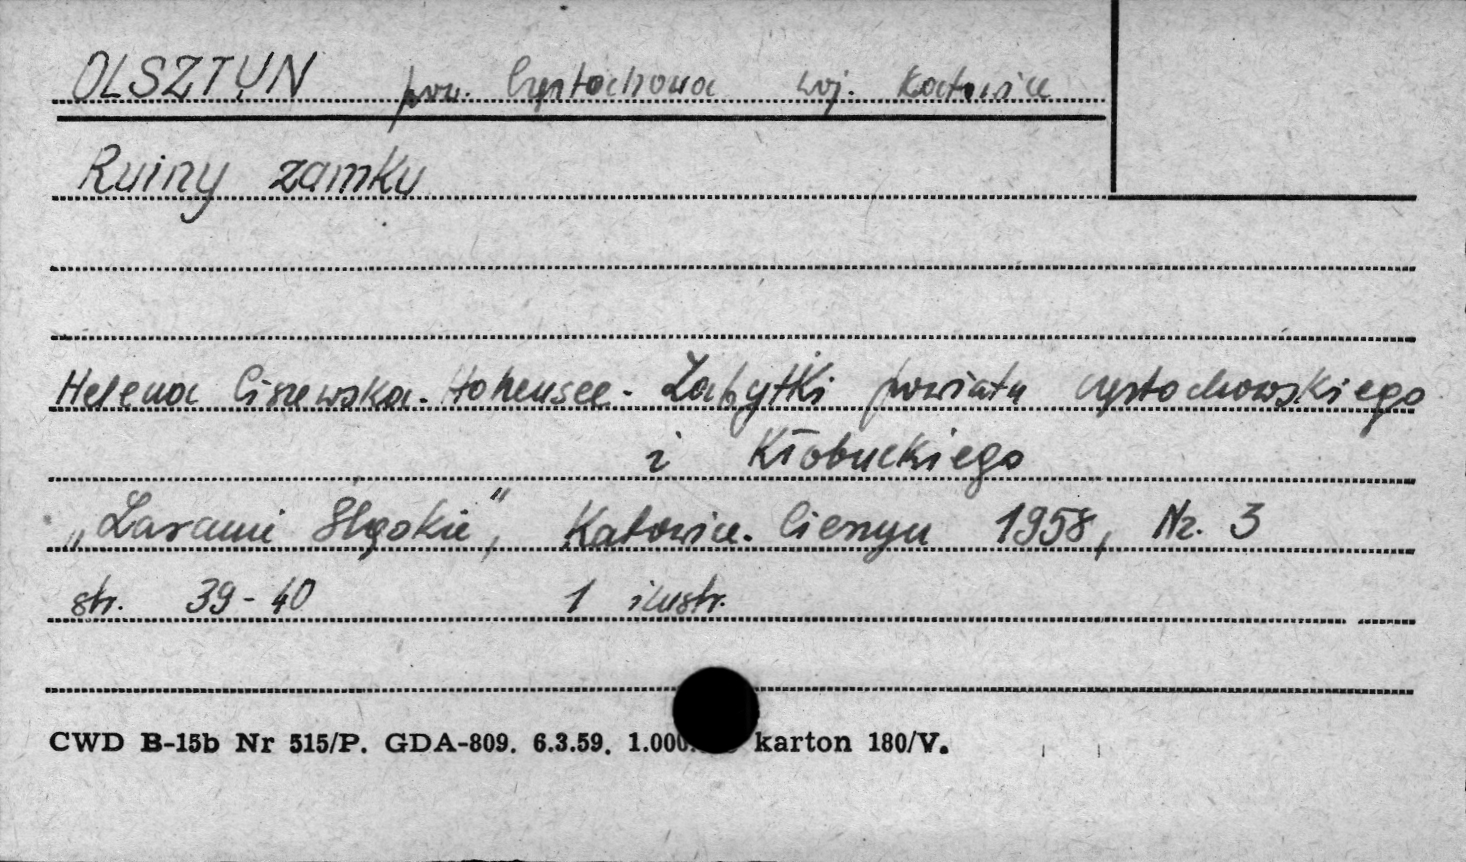 OLSZTYN pow. Częstochowa woj. Katowice
Ruiny zamku
Helena Ciszewska-Hohensee - Zabytki powiatu częstochowskiego
i Kłobuckiego
„Zaranie Śląskie”, Katowice-Cieszyn 1958, Nr. 3
str. 39-40 1 ilustr.
CWD B-15b Nr 515/P. GDA-809. 6.3.59. 1.000. karton 180/V.